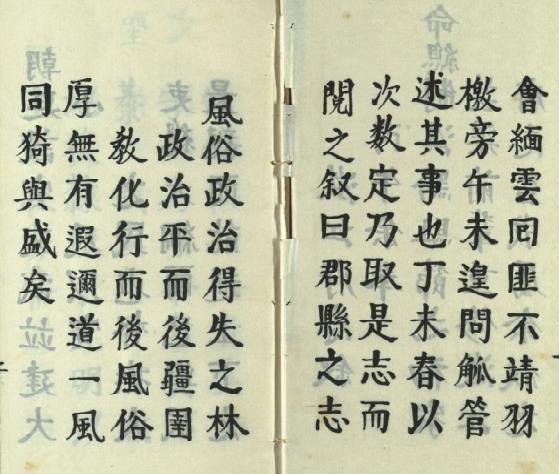 會緬雲囘匪不靖羽
檄旁午未遑問觚管
述其事也丁未春以
次数定乃取是志而
閱之叙曰郡縣之志
風俗政治得失之林
政治平而後疆圉
教化行而後風俗
厚無有遐邇道一風
同猗與盛矣